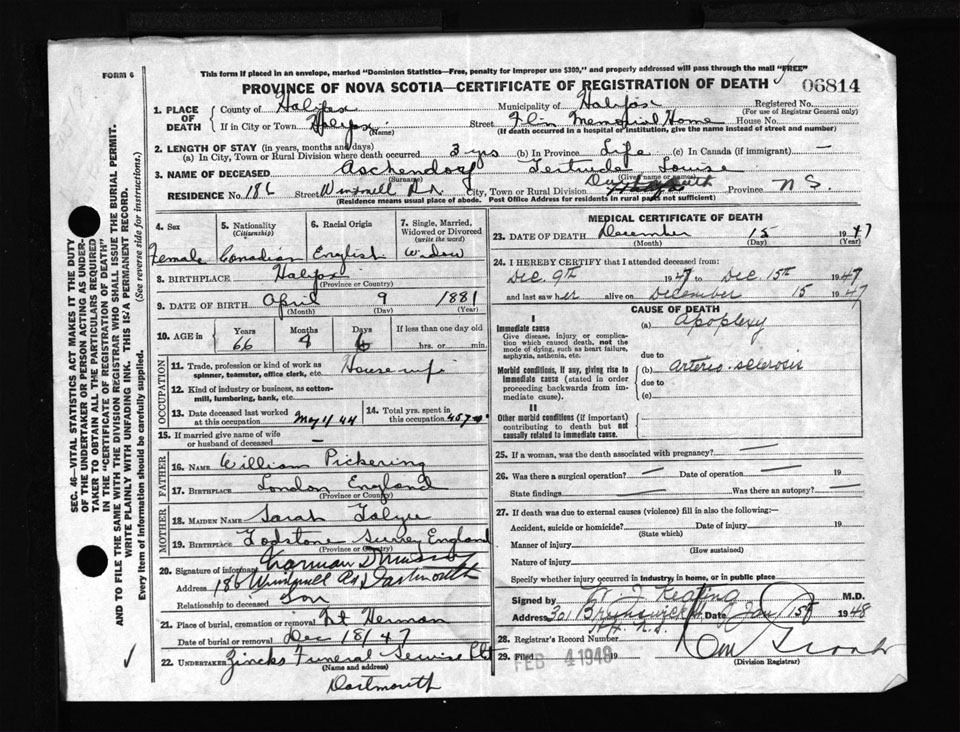 This form if placed in an envelope, marked "Dominion Statistics—Free, penalty for improper use $300," and properly addressed will pass through the mail "FREE"
FORM 6
PROVINCE OF NOVA SCOTIA—CERTIFICATE OF REGISTRATION OF DEATH
06814
1. PLACE OF DEATH County of Halifax Municipality of Halifax Registered No.
(For use of Registrar General only)
If in City or Town Halifax (Name) Street Memorial Home House No.
(If death occurred in a hospital or institution, give the name instead of street and number)
2. LENGTH OF STAY (in years, months and days)
(a) In City, Town or Rural Division where death occurred 3 yrs (b) In Province Life (c) In Canada (if immigrant) —
3. NAME OF DECEASED Aschendorf Gertrude Louise
(Surname) (Given name or names)
RESIDENCE NO. 186 Street Windmill Rd. City, Town or Rural Division Dartmouth Province N S.
(Residence means usual place of abode. Post Office Address for residents in rural parts not sufficient)
SEC. 46—VITAL STATISTICS ACT MAKES IT THE DUTY
OF THE UNDERTAKER OR PERSON ACTING AS UNDER-
TAKER TO OBTAIN ALL THE PARTICULARS REQUIRED
IN THE "CERTIFICATE OF REGISTRATION OF DEATH"
AND TO FILE THE SAME WITH THE DIVISION REGISTRAR WHO SHALL ISSUE THE BURIAL PERMIT.
WRITE PLAINLY WITH UNFADING INK. THIS IS A PERMANENT RECORD.
Every item of information should be carefully supplied. (See reverse side for instructions.)
4. Sex 5. Nationality (Citizenship) 6. Racial Origin 7. Single, Married, Widowed or Divorced (write the word)
Female Canadian English Widow
8. BIRTHPLACE Halifax
(Province or Country)
9. DATE OF BIRTH April 9 1881
(Month) (Day) (Year)
10. AGE in Years Months Days If less than one day old
66 hrs. or min.
OCCUPATION
11. Trade, profession or kind of work as spinner, teamster, office clerk, etc. Housewife
12. Kind of industry or business, as cotton-mill, lumbering, bank, etc.
13. Date deceased last worked at this occupation May 1/44 14. Total yrs. spent in this occupation
15. If married give name of wife or husband of deceased —
FATHER
16. NAME William Pickering
17. BIRTHPLACE London England
(Province or Country)
MOTHER
18. MAIDEN NAME Sarah
19. BIRTHPLACE Godstone Surrey England
(Province or Country)
20. Signature of informant
Address 186 Windmill Rd Dartmouth
Relationship to deceased Son
21. Place of burial, cremation or removal Mt Herman
Date of burial or removal Dec 18/47
22. UNDERTAKER Zincks Funeral Service
(Name and address)
Dartmouth
MEDICAL CERTIFICATE OF DEATH
23. DATE OF DEATH December 15 1947
(Month) (Day) (Year)
24. I HEREBY CERTIFY that I attended deceased from:
Dec. 9th 1947 to Dec. 15th 1947
and last saw her alive on December 15 1947
CAUSE OF DEATH
I
Immediate cause (a) Apoplexy
Give disease, injury or complication which caused death, not the mode of dying, such as heart failure, asphyxia, asthenia, etc.
due to
Morbid conditions, if any, giving rise to immediate cause (stated in order proceeding backwards from immediate cause). (b) arterio-sclerosis
due to
(c)
II
Other morbid conditions (if important) contributing to death but not causally related to immediate cause.
25. If a woman, was the death associated with pregnancy? —
26. Was there a surgical operation? — Date of operation — 19
State findings — Was there an autopsy? —
27. If death was due to external causes (violence) fill in also the following:—
Accident, suicide or homicide? Date of injury 19
(State which)
Manner of injury
(How sustained)
Nature of injury
Specify whether injury occurred in industry, in home, or in public place
Signed by Keating M.D.
Address 301 Brunswick St Date Jan 15th 1948
28. Registrar's Record Number
29. Filed FEB 4 1948 19
(Division Registrar)